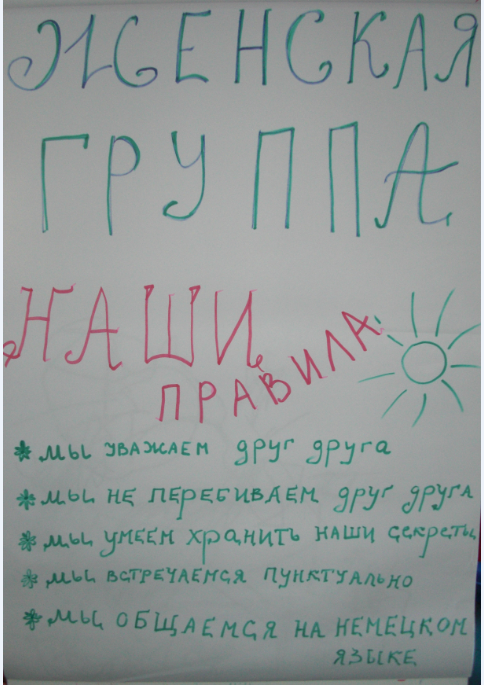 ЖЕНСКАЯ
ГРУППА
НАШИ
ПРАВИЛА
* мы УВАЖАЕМ друг друга
* мы НЕ ПЕРЕБИВАЕМ друг друга
* мы умеем хранить наши секреты
* мы ВСТРЕЧАЕМСЯ ПУНКТУАЛЬНО
* мы ОБЩАЕМСЯ НА НЕМЕЦКОМ
ЯЗЫКЕ